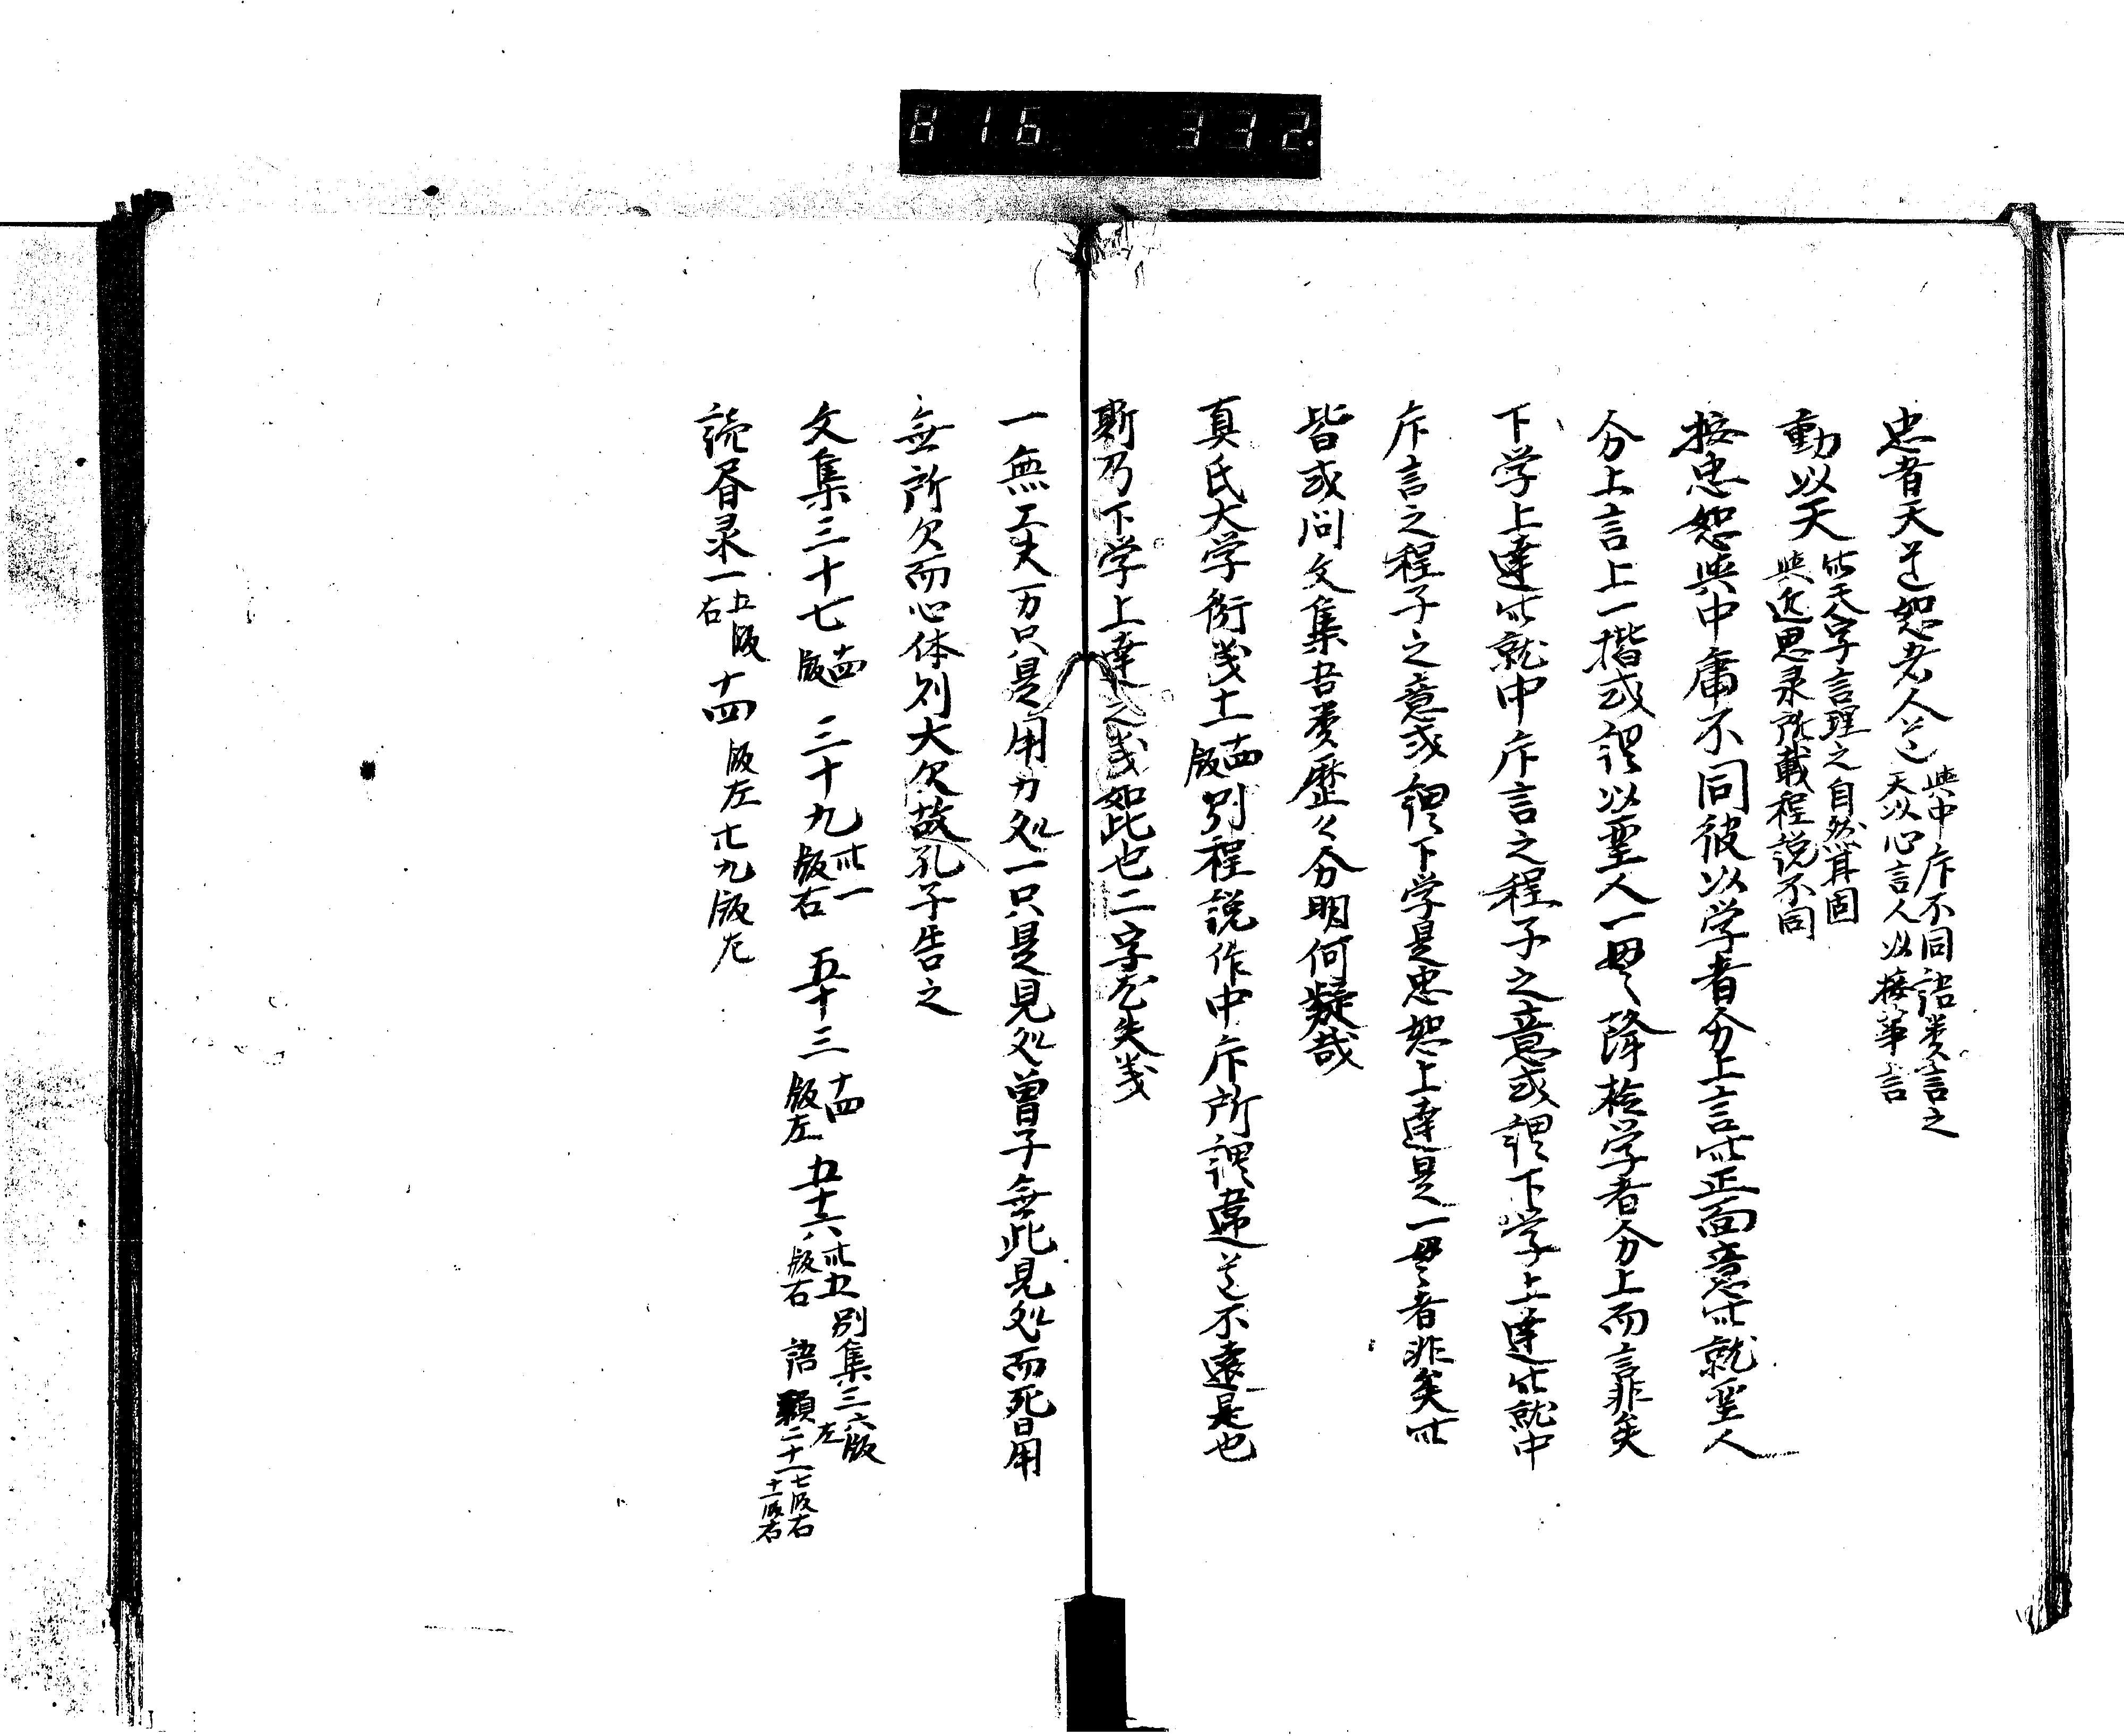 816 332.
忠者天道恕者人道 與中庸不同語类言之
天以心言人以接事言
動以天 此天字言理之自然耳固
與近思录所載程説不同
按忠恕與中庸不同彼以学者分上言此正面意此就聖人
分上言上一揩或謂以聖人一貫降於学者分上而言非矣
下学上達此就中庸言之程子之意或謂下学上達此就中
庸言之程子之意或謂下学是忠恕上達是一貫者非矣此
皆或问文集吾类歴々分明何疑哉
真氏大学衍义十一 十四版 引程説作中庸所謂違道不遠是也
斯乃下学上達之义 如此也二字尤失义
一無工夫万只是用力処一只是見処曽子無此見処而死日用
無所欠而心体則大欠故孔子告之
文集三十七 十四版 三十九 廿一版右 五十三 十四版左 五十六 廿五版右 別集三 六版左 語類二十一 七版右 十一版右
読書录一 五版右 十四 版左 廿九版左